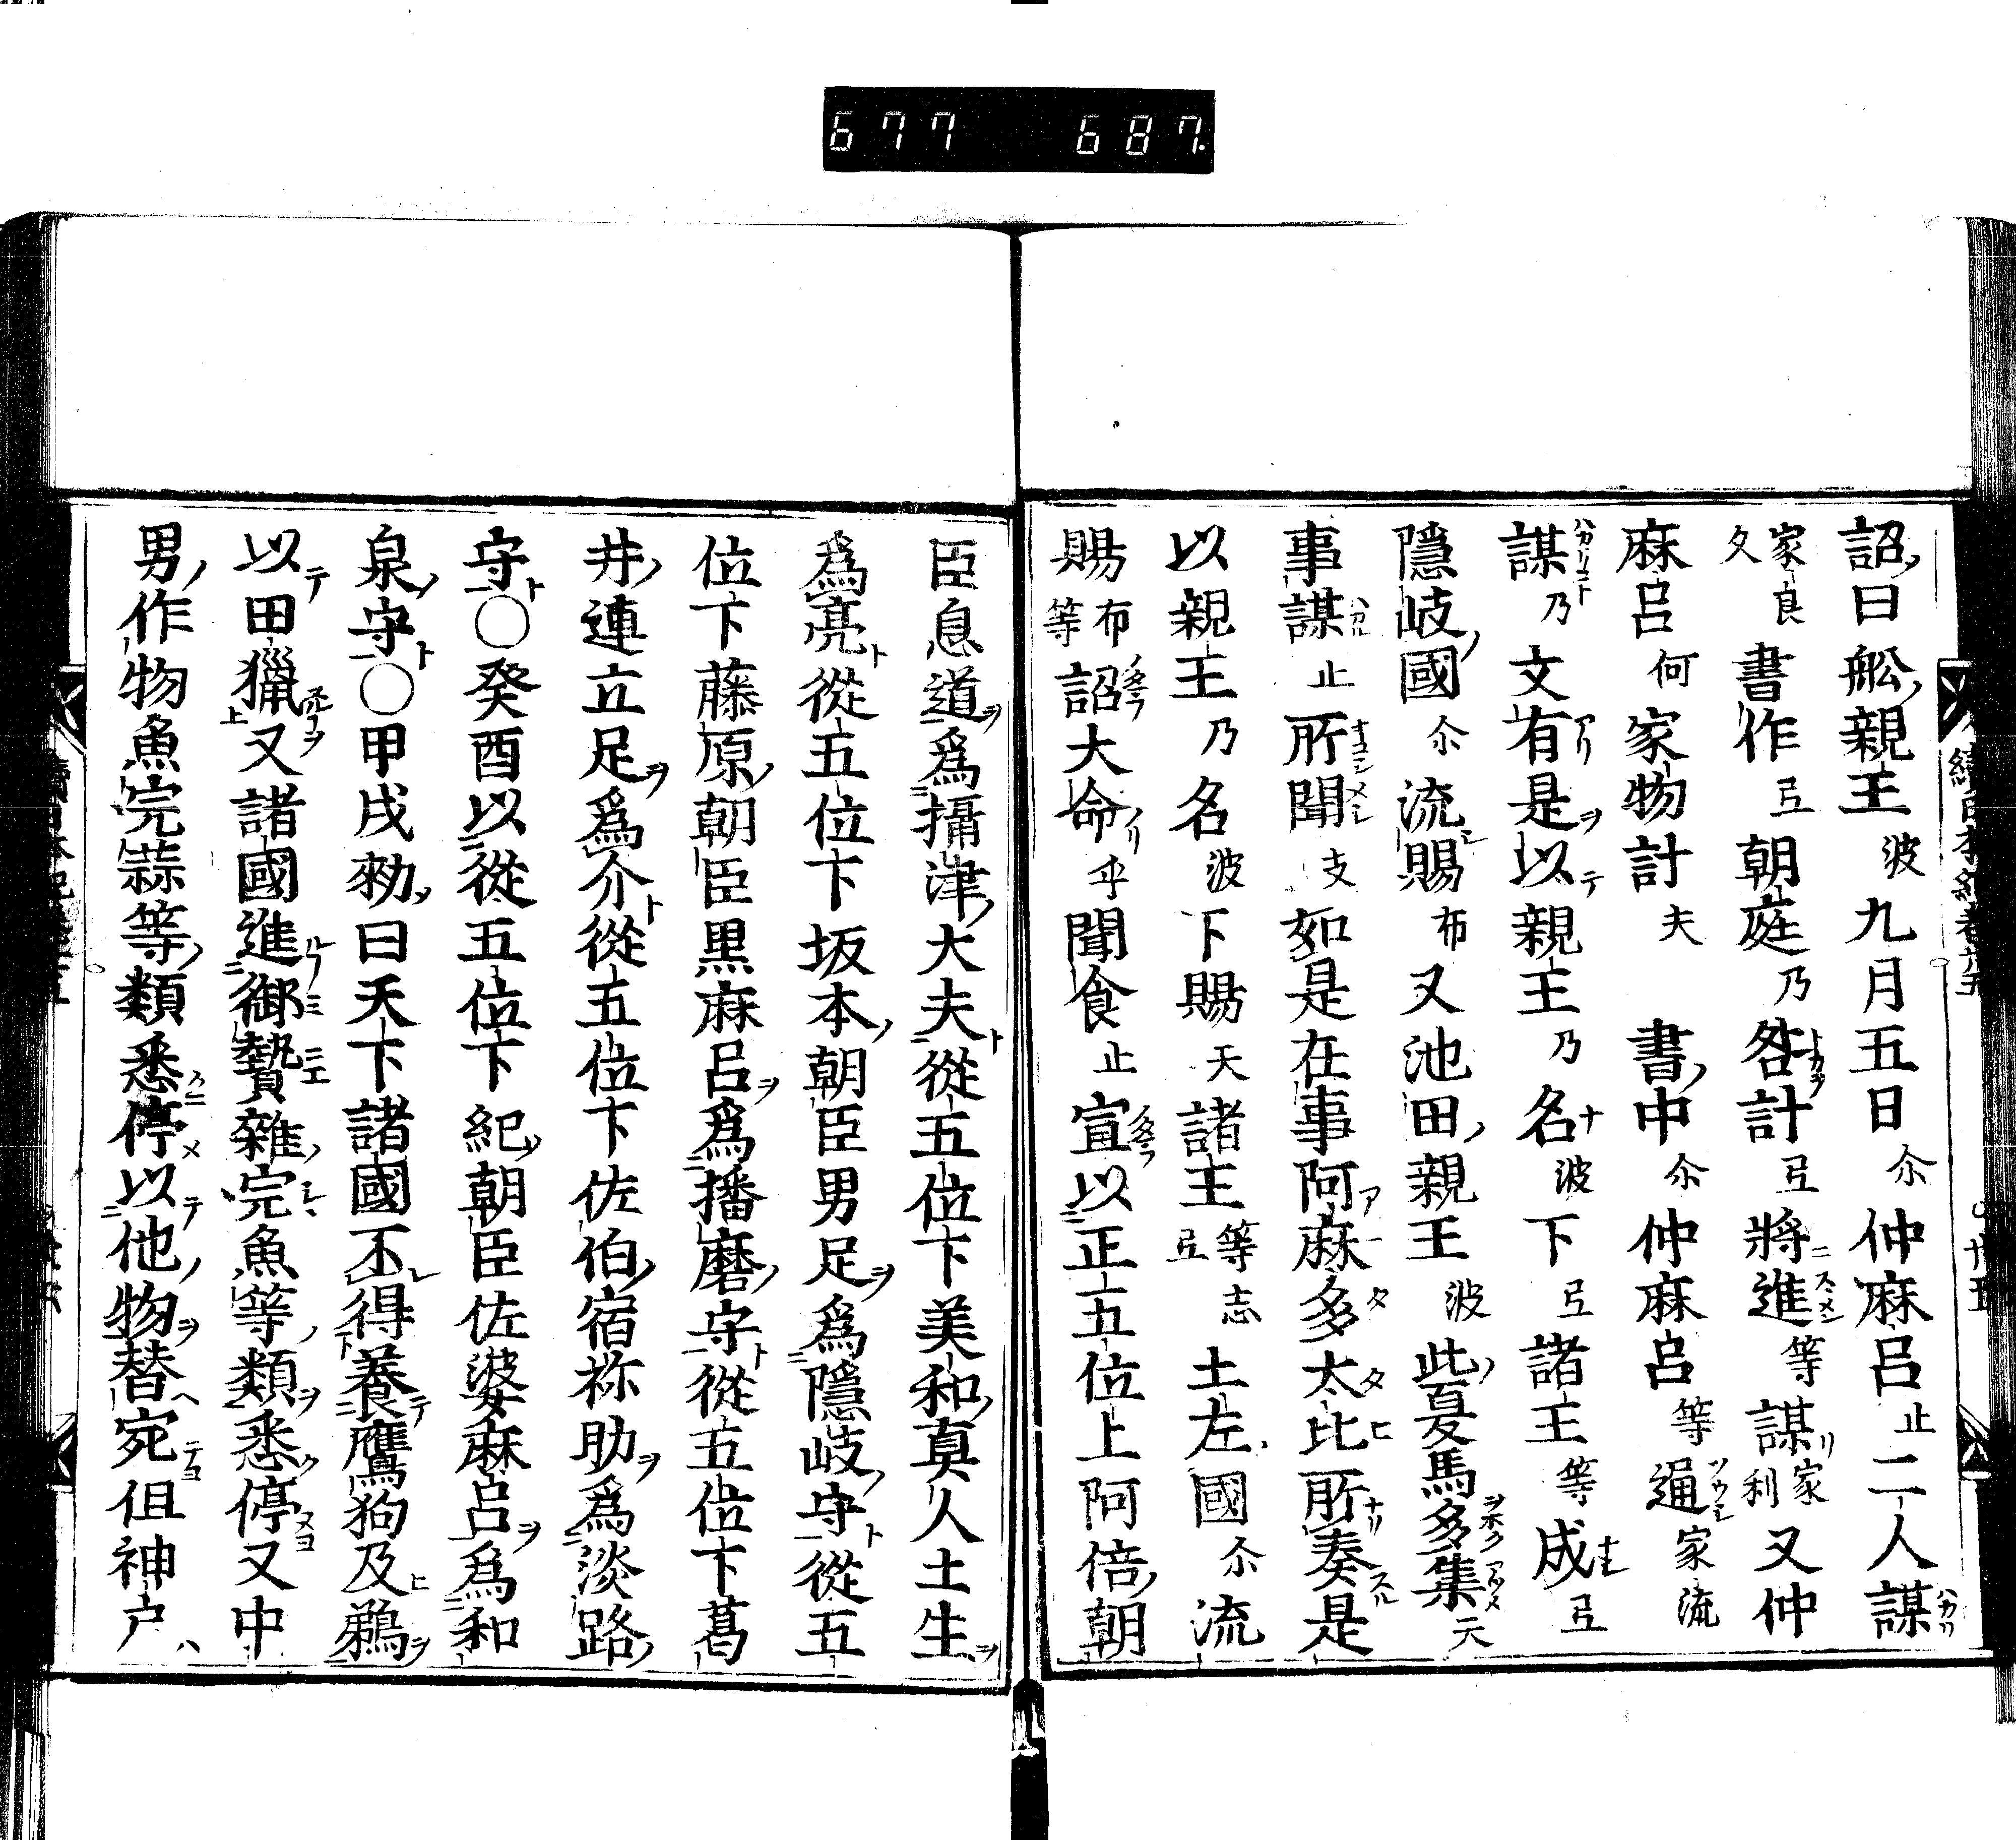 677 687.
詔曰舩親王波九月五日尒仲麻呂止二人謀
家良久書作弖朝庭乃咎計弖將進等謀家利又仲
麻呂何家物計夫書中尒仲麻呂等通家流
謀乃文有是以親王乃名波下弖諸王等成弖
隱岐國尒流賜布又池田親王波此夏馬多集天
事謀止所聞支如是在事阿麻多太比所奏是
以親王乃名波下賜天諸王等志弖土左國尒流
賜布等詔大命乎聞食止宣以正五位上阿倍朝
臣息道爲攝津大夫從五位下美和真人土生
爲亮從五位下坂本朝臣男足爲隱岐守從五
位下藤原朝臣黒麻呂爲播磨守從五位下葛
井連立足爲介從五位下佐伯宿祢助爲淡路
守○癸酉以從五位下紀朝臣佐婆麻呂爲和
泉守○甲戌勑曰天下諸國不得養鷹狗及鵜
以田獵又諸國進御贄雜完魚等類悉停又中
男作物魚完蒜等類悉停以他物替宛但神户